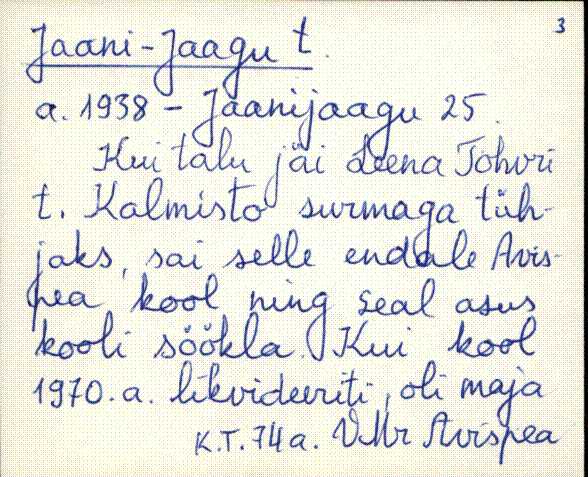 3
Jaani-Jaagu t.
a. 1938 - Jaanijaagu 25.
Kui talu jäi Leena Tohvri
t. Kalmisto surmaga tüh-
jaks, sai selle endale Avis-
pea kool ning seal asus
kooli söökla. Kui kool
1970.a. likvideeriti, oli maja
K.T. 74a. VMr Avispea